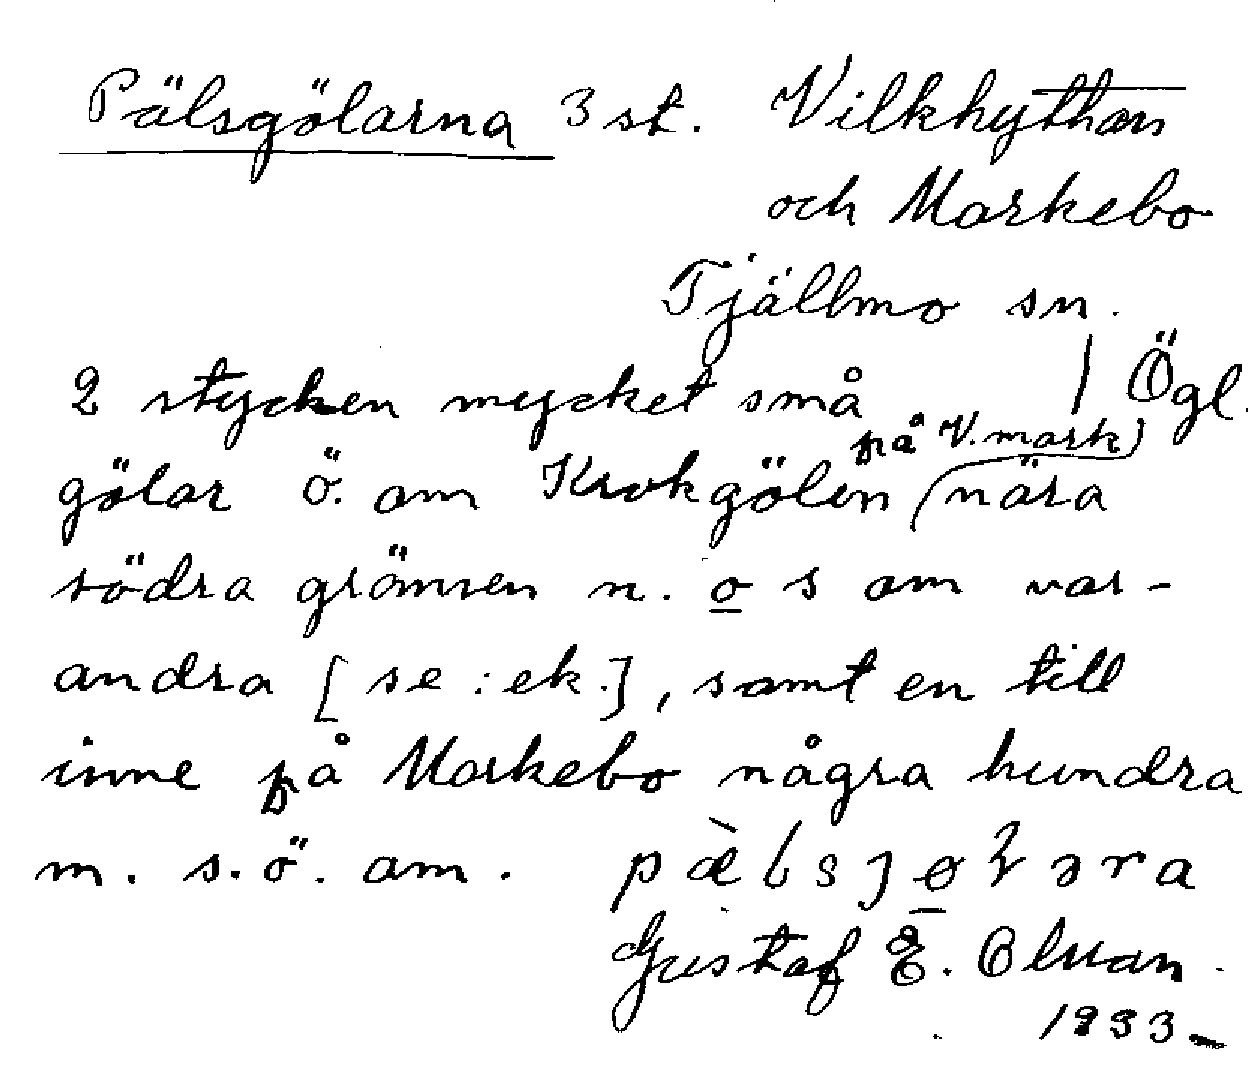 Pälsgölarna 3 st. Vilkhyttan
och Markebo
Tjällmo sn.
2 stycken mycket små | Ögl.
på V. mark)
gölar ö. om Krokgölen (nära
södra gränsen n. o s om var-
andra [se: ek.], samt en till
inne på Markebo några hundra
m. s.ö. om.
Gustaf E. Olsson.
1933